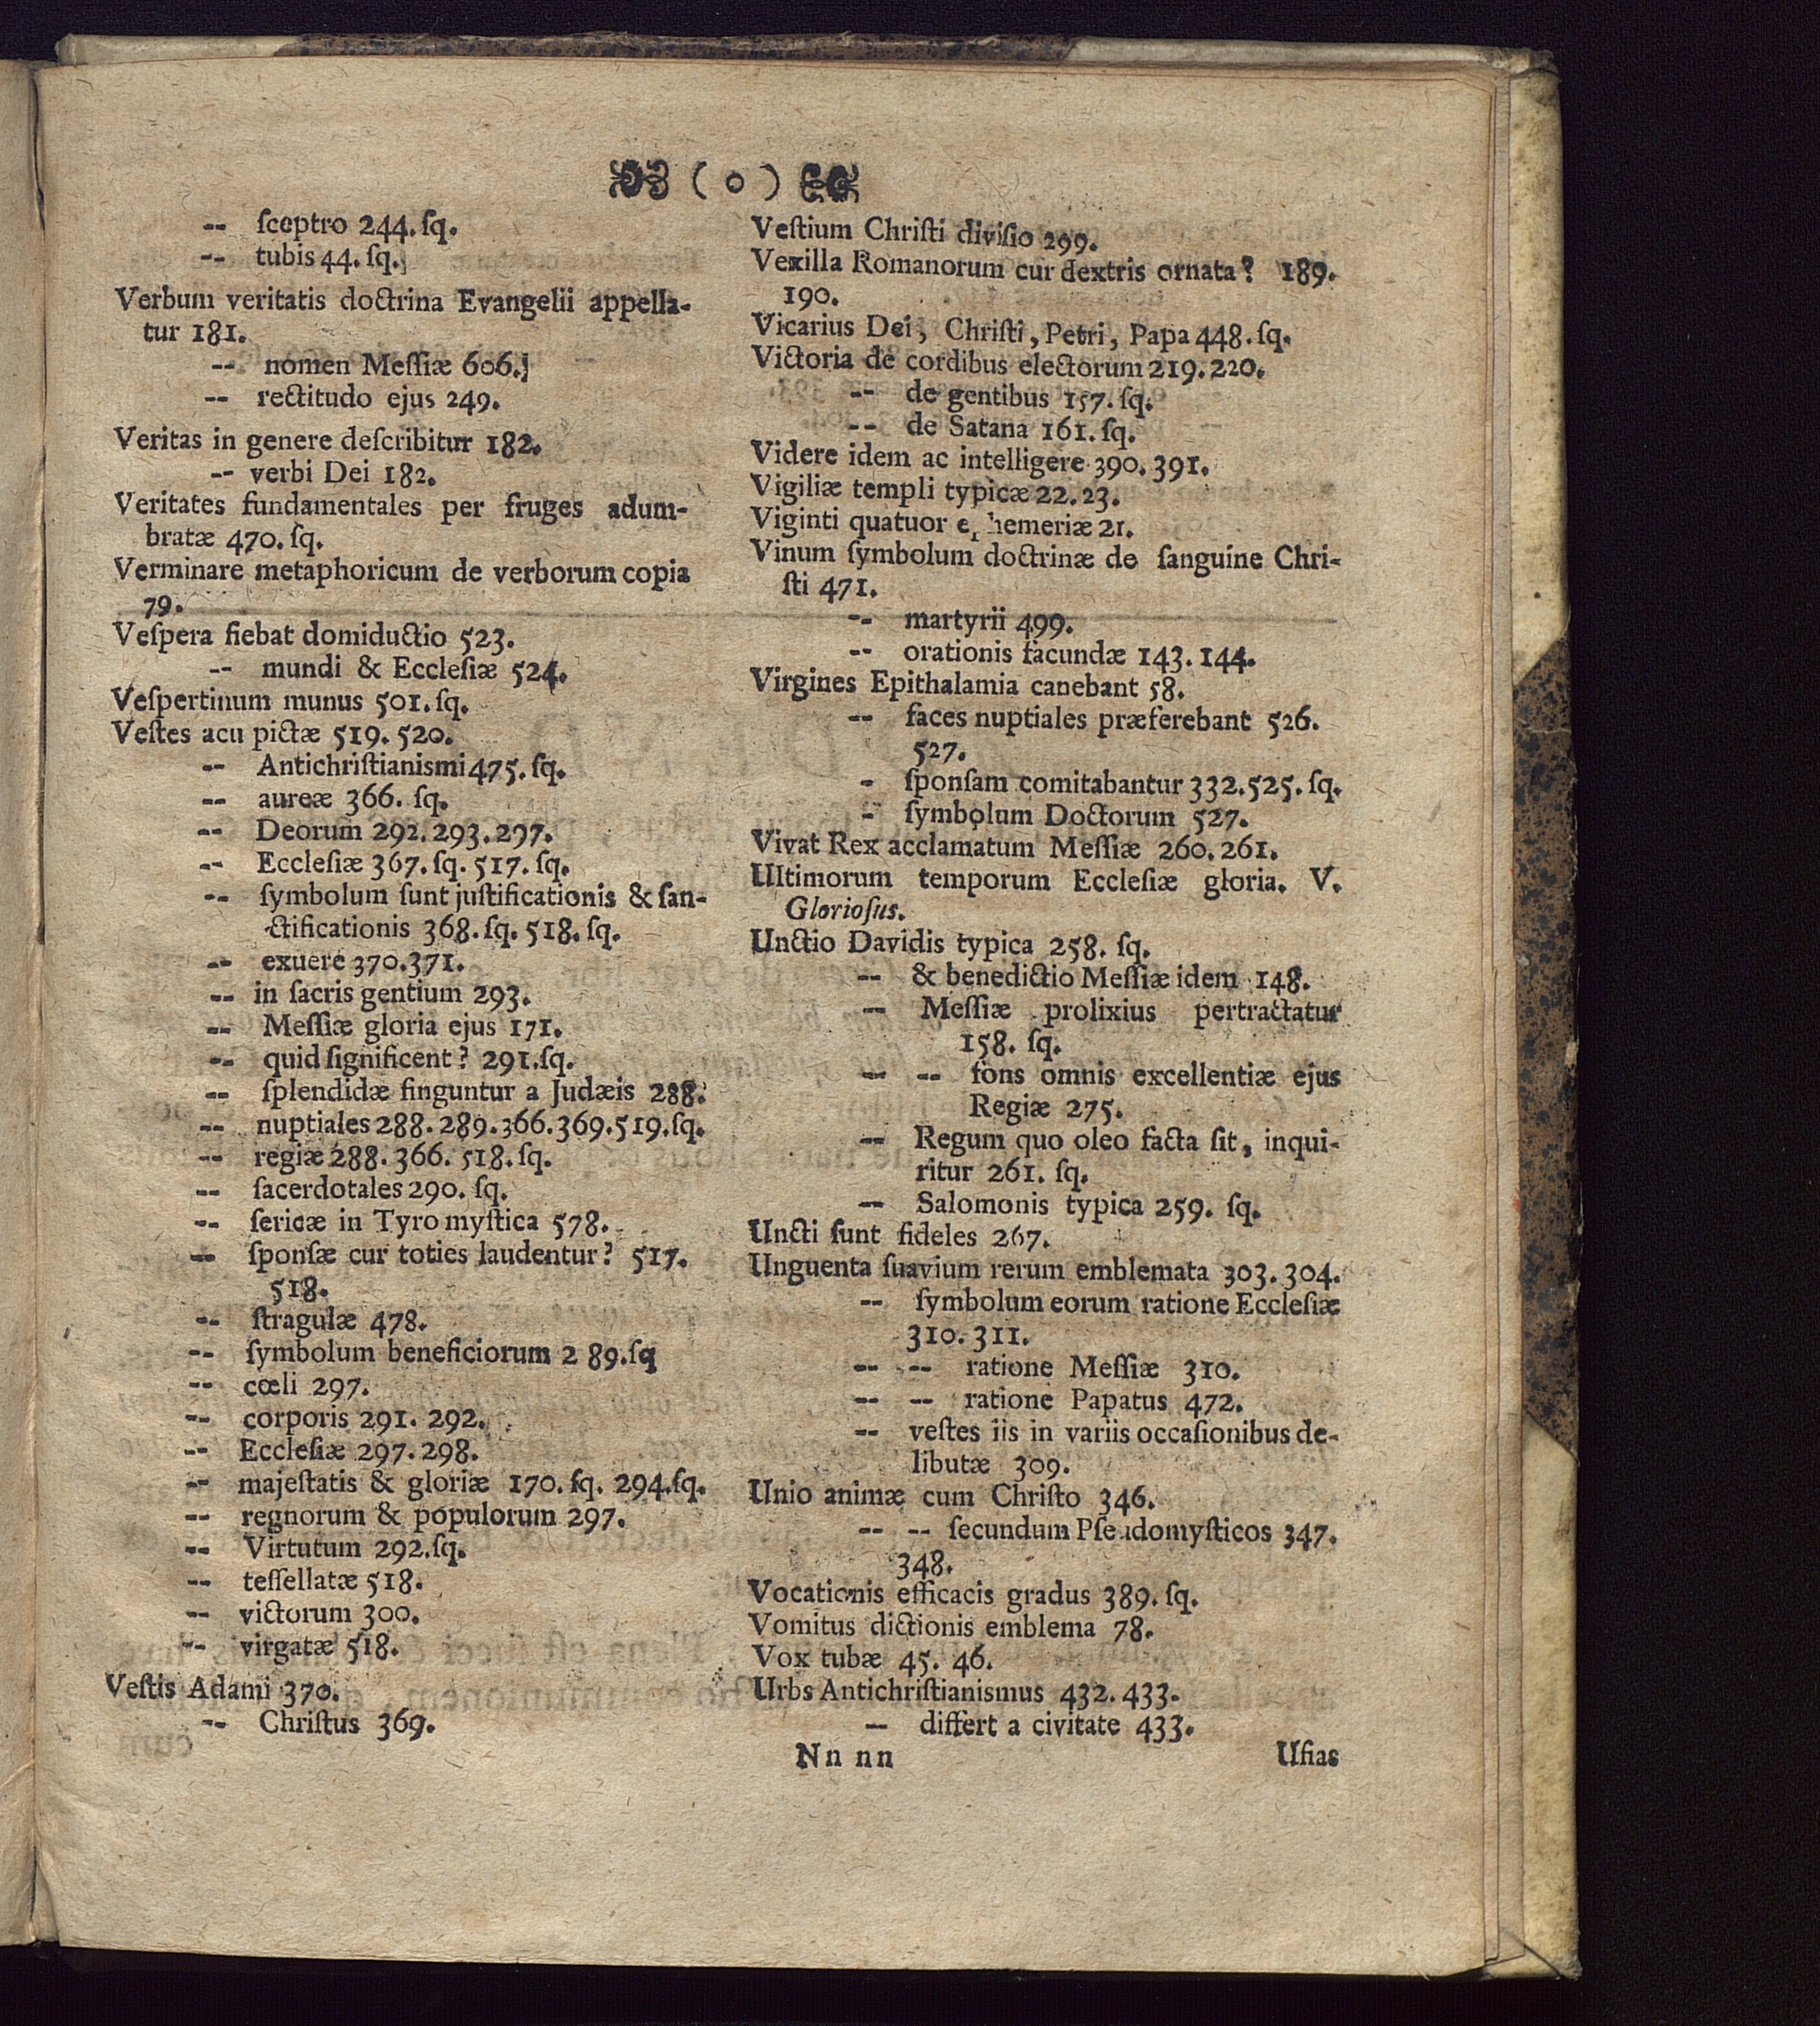 ( o )
-- ſceptro 244. ſq.
-- tubis 44. ſq.
Verbum veritatis doctrina Evangelii appella-
tur 181.
-- nomen Meſſiæ 606.
-- rectitudo ejus 249.
Veritas in genere deſcribitur 182.
-- verbi Dei 182.
Veritates fundamentales per fruges adum-
bratæ 470. ſq.
Verminare metaphoricum de verborum copia
79.
Veſpera fiebat domiductio 523.
-- mundi & Eccleſiæ 524.
Veſpertinum munus 501. ſq.
Veſtes acu pictæ 519. 520.
-- Antichriſtianismi 475. ſq.
-- aureæ 366. ſq.
-- Deorum 292. 293. 297.
-- Eccleſiæ 367. ſq. 517. ſq.
-- ſymbolum ſunt juſtificationis & ſan-
ctificationis 368. ſq. 518. ſq.
-- exuere 370. 371.
-- in ſacris gentium 293.
-- Meſſiæ gloria ejus 171.
-- quid ſignificent? 291. ſq.
-- ſplendidæ finguntur a Judæis 288.
-- nuptiales 288. 289. 366. 369. 519. ſq.
-- regiæ 288. 366. 518. ſq.
-- ſacerdotales 290. ſq.
-- ſericæ in Tyro myſtica 578.
-- ſponſæ cur toties laudentur? 517.
518.
-- ſtragulæ 478.
-- ſymbolum beneficiorum 2 89. ſq
-- cœli 297.
-- corporis 291. 292.
-- Eccleſiæ 297. 298.
-- majeſtatis & gloriæ 170. ſq. 294. ſq.
-- regnorum & populorum 297.
-- Virtutum 292. ſq.
-- teſſellatæ 518.
-- victorum 300.
-- virgatæ 518.
Veſtis Adami 370.
-- Chriſtus 369.
Veſtium Chriſti diviſio 299.
Vexilla Romanorum cur dextris ornata? 189.
190.
Vicarius Dei, Chriſti, Petri, Papa 448. ſq.
Victoria de cordibus electorum 219. 220.
-- de gentibus 157. ſq.
-- de Satana 161. ſq.
Videre idem ac intelligere 390. 391.
Vigiliæ templi typicæ 22. 23.
Viginti quatuor ephemeriæ 21.
Vinum ſymbolum doctrinæ de ſanguine Chri-
ſti 471.
-- martyrii 499.
-- orationis facundæ 143. 144.
Virgines Epithalamia canebant 58.
-- faces nuptiales præferebant 526.
527.
- ſponſam comitabantur 332. 525. ſq.
- ſymbolum Doctorum 527.
Vivat Rex acclamatum Meſſiæ 260. 261.
Ultimorum temporum Eccleſiæ gloria. V.
Glorioſus.
Unctio Davidis typica 258. ſq.
-- & benedictio Meſſiæ idem 148.
-- Meſſiæ prolixius pertractatur
158. ſq.
-- -- fons omnis excellentiæ ejus
Regiæ 275.
-- Regum quo oleo facta ſit, inqui-
ritur 261. ſq.
-- Salomonis typica 259. ſq.
Uncti ſunt fideles 267.
Unguenta ſuavium rerum emblemata 303. 304.
-- ſymbolum eorum ratione Eccleſiæ
310. 311.
-- -- ratione Meſſiæ 310.
-- -- ratione Papatus 472.
-- veſtes iis in variis occaſionibus de-
libutæ 309.
Unio animæ cum Chriſto 346.
-- -- ſecundum Pſeudomyſticos 347.
348.
Vocationis efficacis gradus 389. ſq.
Vomitus dictionis emblema 78.
Vox tubæ 45. 46.
Urbs Antichriſtianismus 432. 433.
-- differt a civitate 433.
Nn nn
Uſias